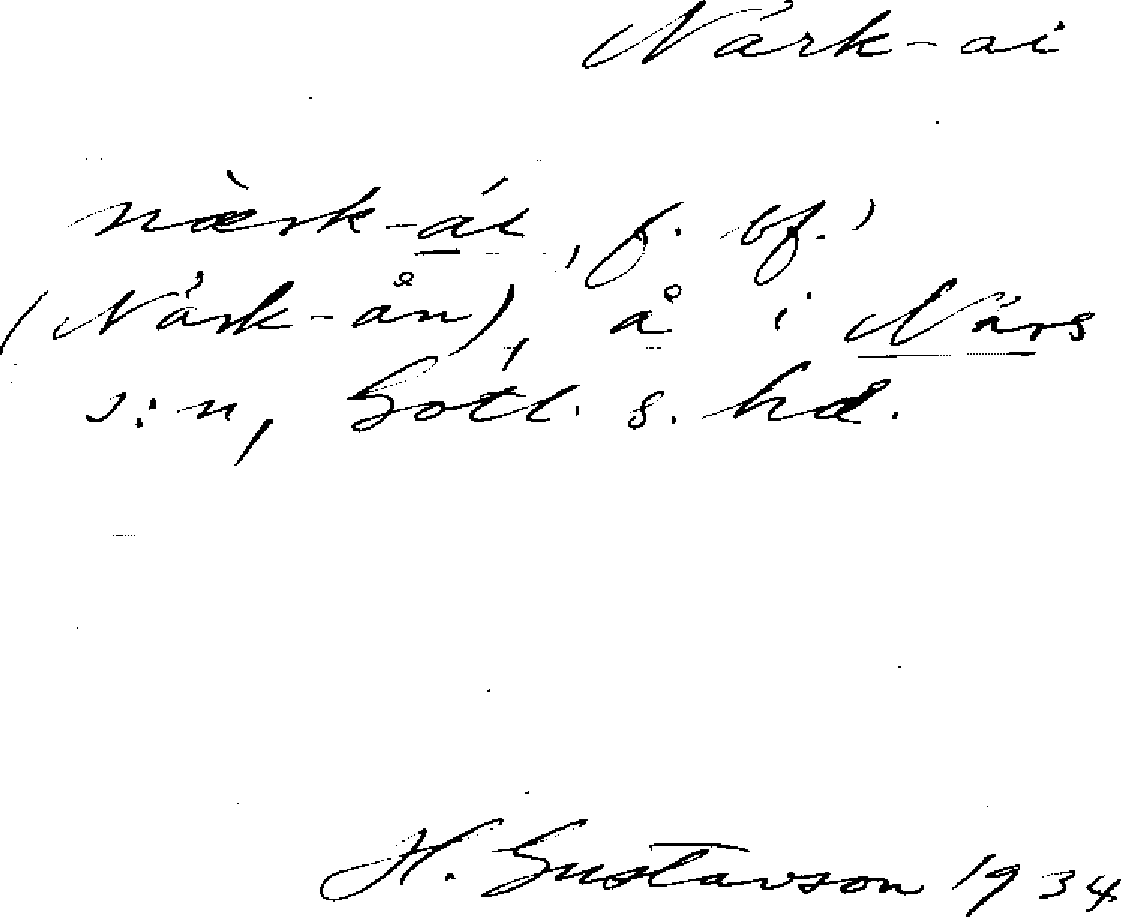 Närk-ai
næ̀rk-ái, f. bf.
(Närk-ån), å i Närs
s:n, Gotl. s. hd.
H. Gustavson 1934